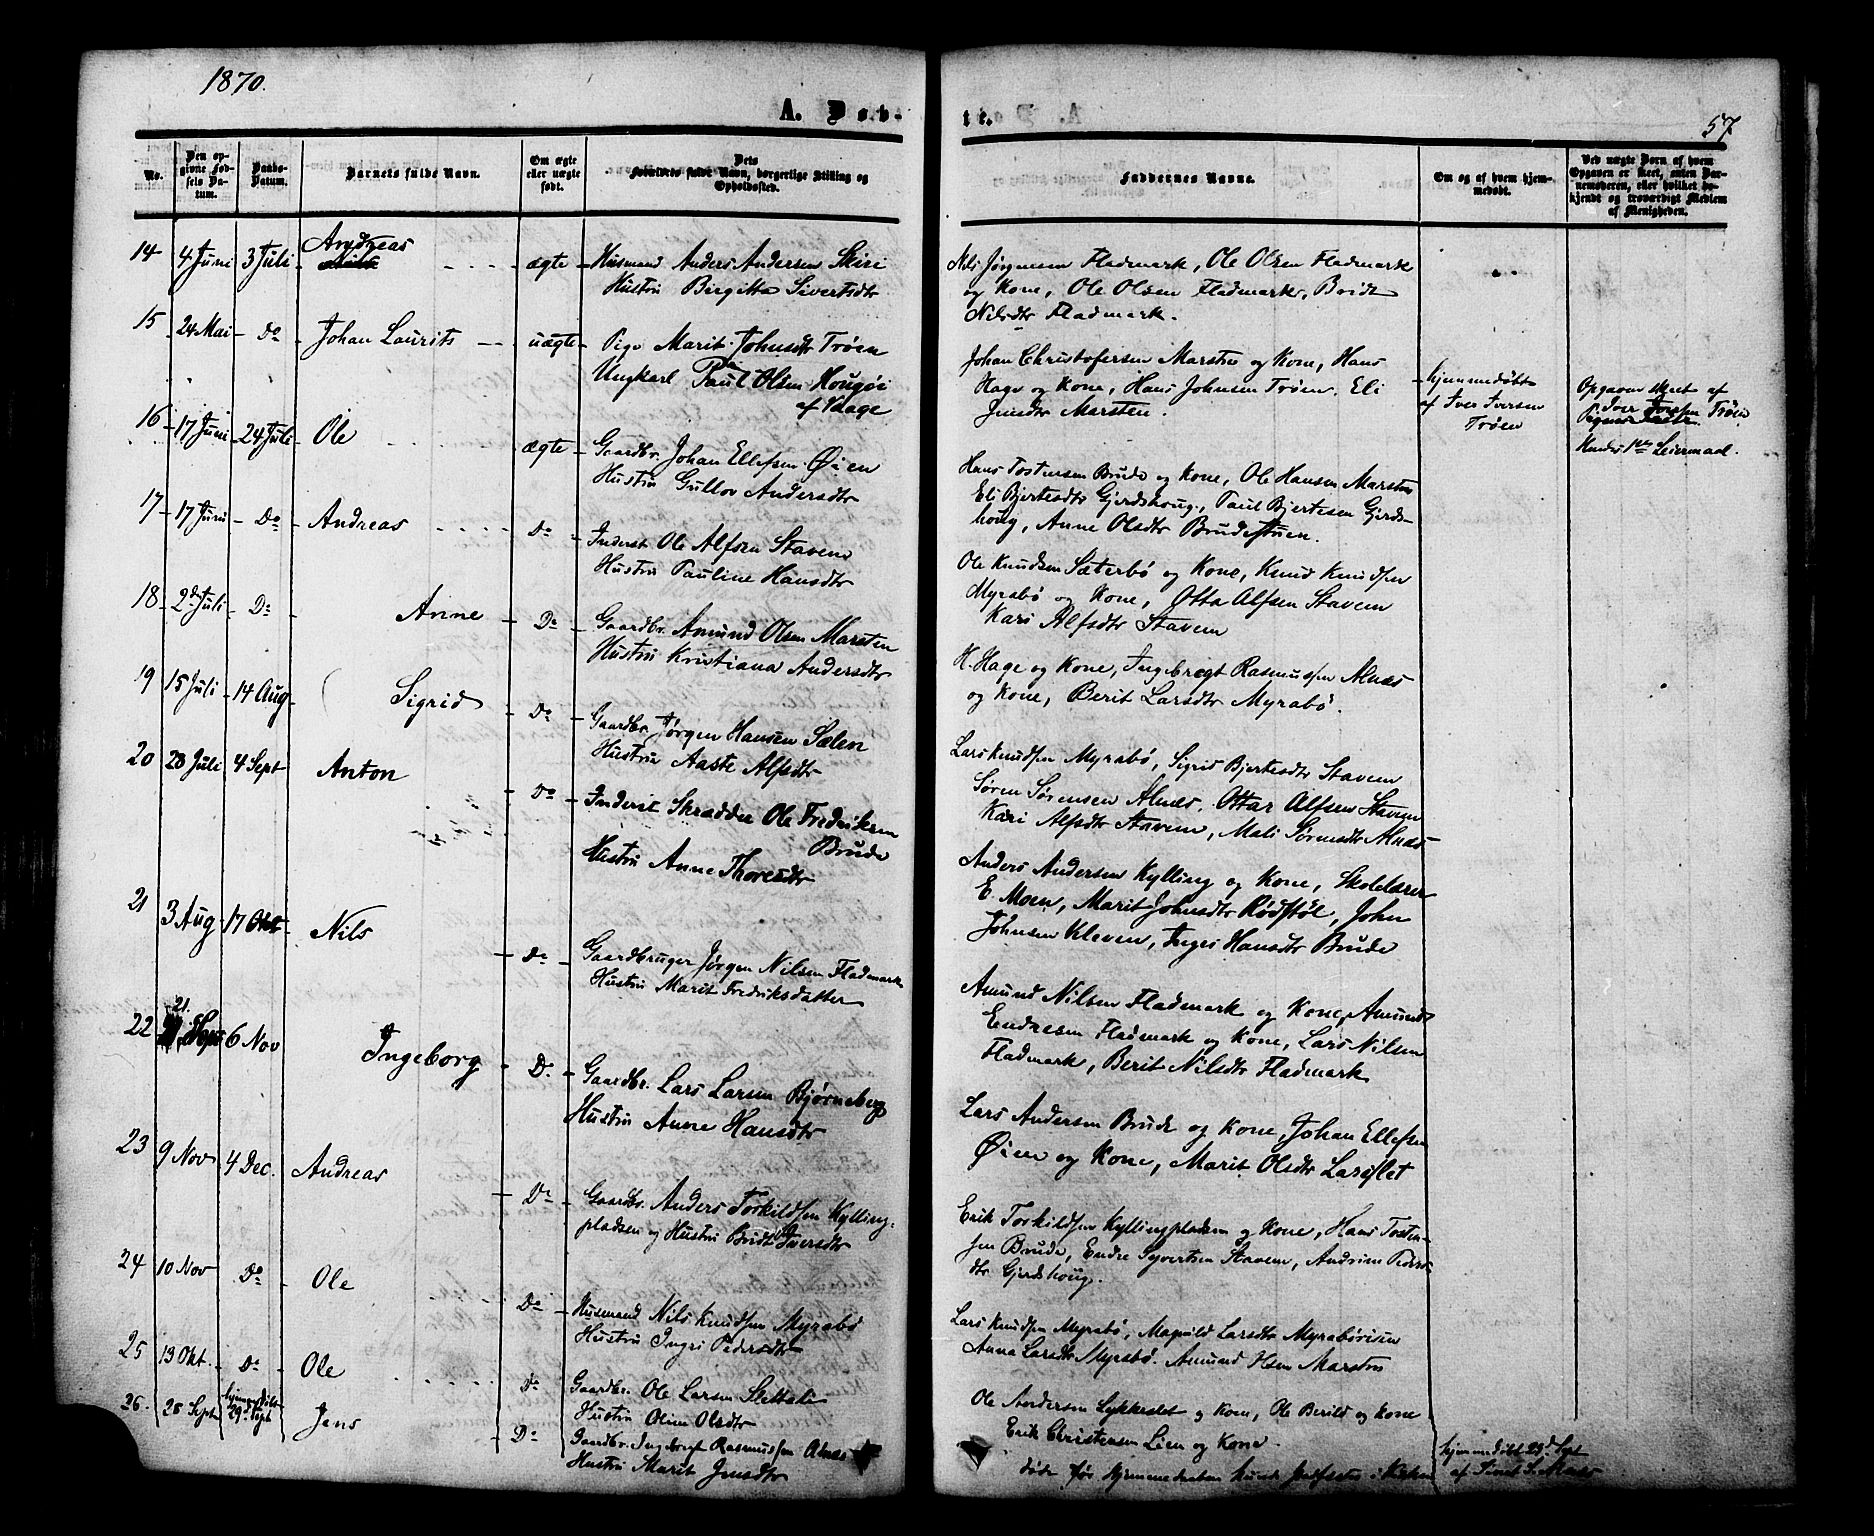 1870.
57
A. Døb-
te.
No.
Den opgivne Fødsels Datum.
Daabs-Datum.
Barnets fulde Navn.
Om ægte eller uægte født.
Dets Forældres fulde Navn, borgerlige Stilling og Opholdssted.
Faddernes Navne.
Om og af hvem hjemmedøbt.
Ved uægte Born af hvem Opgaven er skeet, enten Barnemoderen, eller hvilket bekjendt og troværdigt Medlem af Menigheden.
14 4 Juni 3 Juli Andreas ægte Husmand Anders Andersen Skiri
Hustru Birgitta Sivertsdtr
Nils Jørgensen Fladmark, Ole Olsen Fladmark
og Kone, Ole Olsen Fladmark, Bridt
Nilsdtr Fladmark.
15 24 Mai Do Johan Laurits uægte Pige Marit Johnsdtr Trøen
Ungkarl Paul Olsen Hougøi
af Vaage
Johan Christofersen Marstin og Kone, Hans
Hage og Kone, Hans Johnsen Trøen. Eli
Jensdtr Marsten.
hjemmedøbt
af Iver Iversen
Trøen
Opgaven skeet af
Iver Iversen Trøen.
Hendes 1ste Leiermaal.
16 17 Juni 24 Juli Ole ægte Gaardbr. Johan Ellefsen Øien
Hustru Gullov Andersdtr
Hans Tostensen Brude og Kone, Ole Hansen Marstin
Eli Bjertesdtr Gjerdshoug, Paul Bjertesen Gjerds-
houg, Anne Olsdtr Brudestuen.
17 17 Juni Do Andreas Do Inderst Ole Alfsen Stavem
Hustru Pauline Hansdtr
Ole Knudsen Sæterbø og Kone, Knud Knudsen
Myrabø og Kone, Otta Alfsen Stavem
Kari Alfsdtr Stavem
18 2d Juli Do Anne Do Gaardbr. Amund Olsen Marsten
Hustru Kristiana Andersdtr
H. Hage og Kone, Ingebregt Rasmussen Alnæs
og Kone, Berit Larsdtr Myrabø.
19 15 Juli 14 Aug Sigrid Do Gaardbr. Jørgen Hansen Sælen
Hustru Aaste Alfsdtr
Lars Knudsen Myrabø, Sigrid Bjertesdtr Stavem
Søren Sørensen Alnæs, Ottar Alfsen Stavem
Kari Alfsdtr Stavem, Mali Sørensdtr Alnæs
20 28 Juli 4 Sept Anton Do Inderst Skrædder Ole Fredriksen
Brude
Hustru Anne Thoresdtr
Anders Andersen Kylling og Kone, Skolelærer
E. Moen, Marit Johnsdtr Rødstøl, John
Johnsen Kleven, Inger Hansdtr Brude
21 3 Aug 17 Okt Nils Do Gaardbruger Jørgen Nilsen Fladmark
Hustru Marit Fredriksdatter
Amund Nilsen Fladmark og Kone, Amund
Endresen Fladmark og Kone, Lars Nilsen
Fladmark, Berit Nilsdtr Fladmark
22 21. Sept 6 Nov Ingeborg Do Gaardbr. Lars Larsen Bjørneberg
Hustru Anne Hansdtr
Lars Andersen Brude og Kone, Johan Ellefsen
Øien og Kone, Marit Olsdtr
23 9 Nov 4 Dec. Andreas Do Gaardbr. Anders Torkildsen Kylling-
pladsen og Hustru Bridt Iversdtr
Erik Torkildsen Kyllingpladsen og Kone, Hans Tosten-
sen Brude, Endre Syvertsen Stavem, Andrine Peders-
dtr Gjerdshoug.
24 10 Nov Do Ole Do Husmand Nils Knudsen Myrabø
Hustru Ingri Pedersdtr
Lars Knudsen Myrabø, Magnild Larsdtr Myrabø
Anna Larsdtr Myrabø. Amund Marstin
25 13 Okt. Do Ole Do Gaardbr. Ole Larsen Slettali
Hustru Oline Olsdtr
Ole Andersen Lykkeslet og Kone, Ole Berild og Kone
Erik Christensen Lien og Kone.
26. 28 Sept hjemmedøbt
29d Sept
Jens Do Gaardbr. Ingebregt Rasmussen Alnæs
Hustru Marit Jensdtr
døde før Hjemmedaaben kunde i Kirken
hjemmedøbt 29d Sept
af S. Alnæs